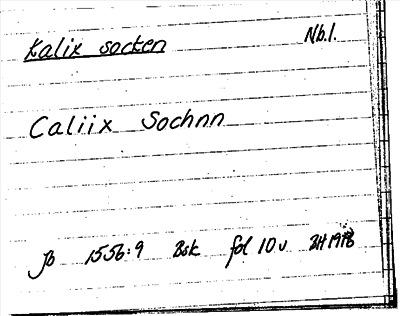 Kalix socken Nb.
Caliix Sochnn
Jb 1556:9 Bsk fol 10 v BH 1978